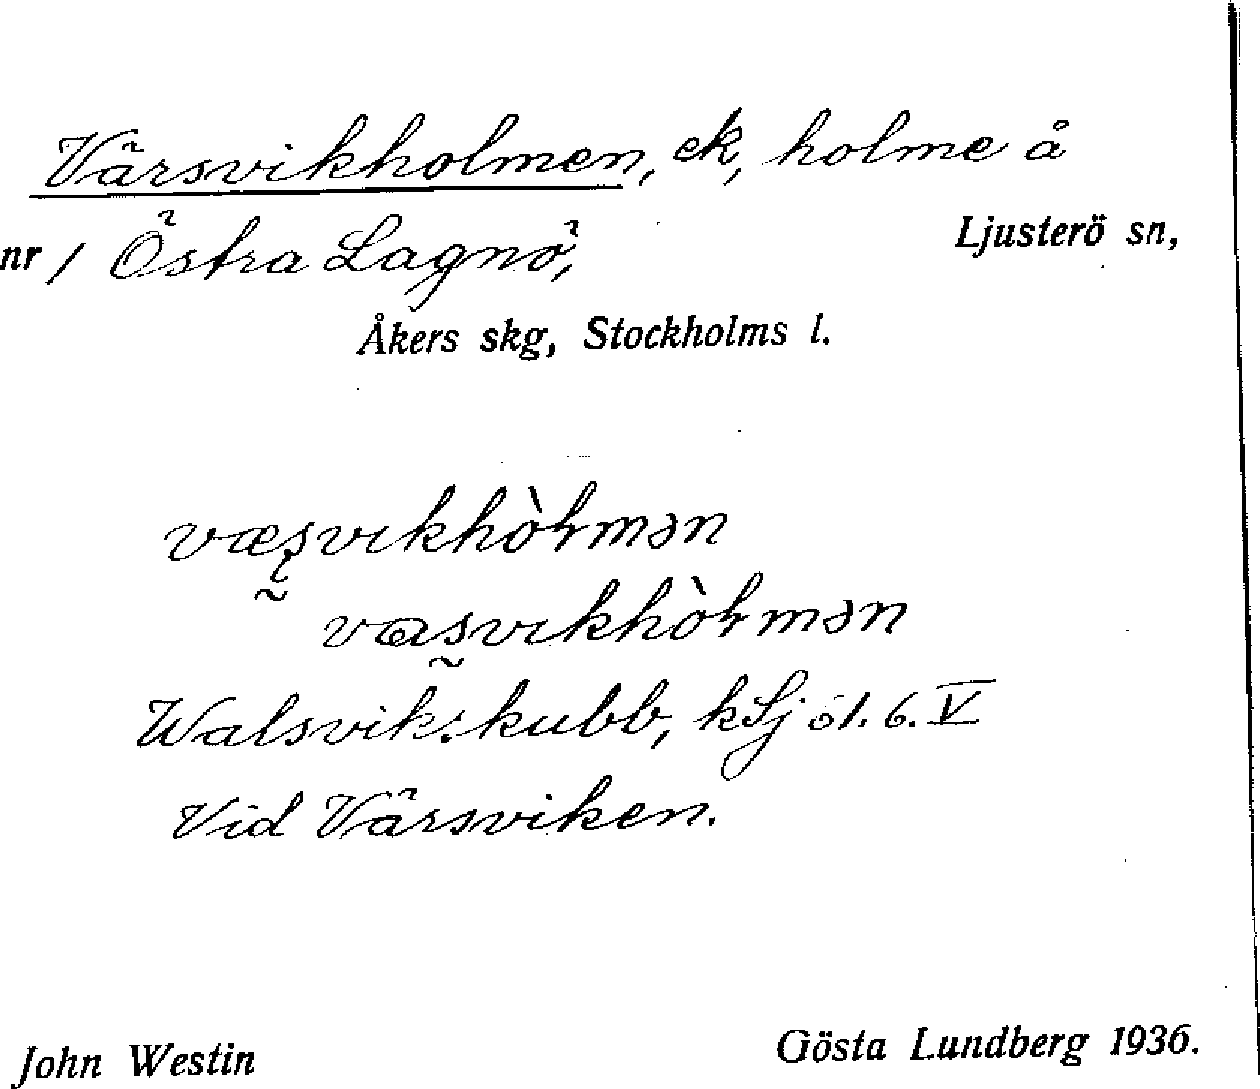 Värsvikholmen, ek, holme å
nr / Östra Lagnö, Ljusterö sn,
Åkers skg, Stockholms l.
væʂvɩkhòɫmən
vasvɩkhòɫmən
Walsvik: kubb, kLjöl. 6. V
Vid Värsviken.
John Westin Gösta Lundberg 1936.